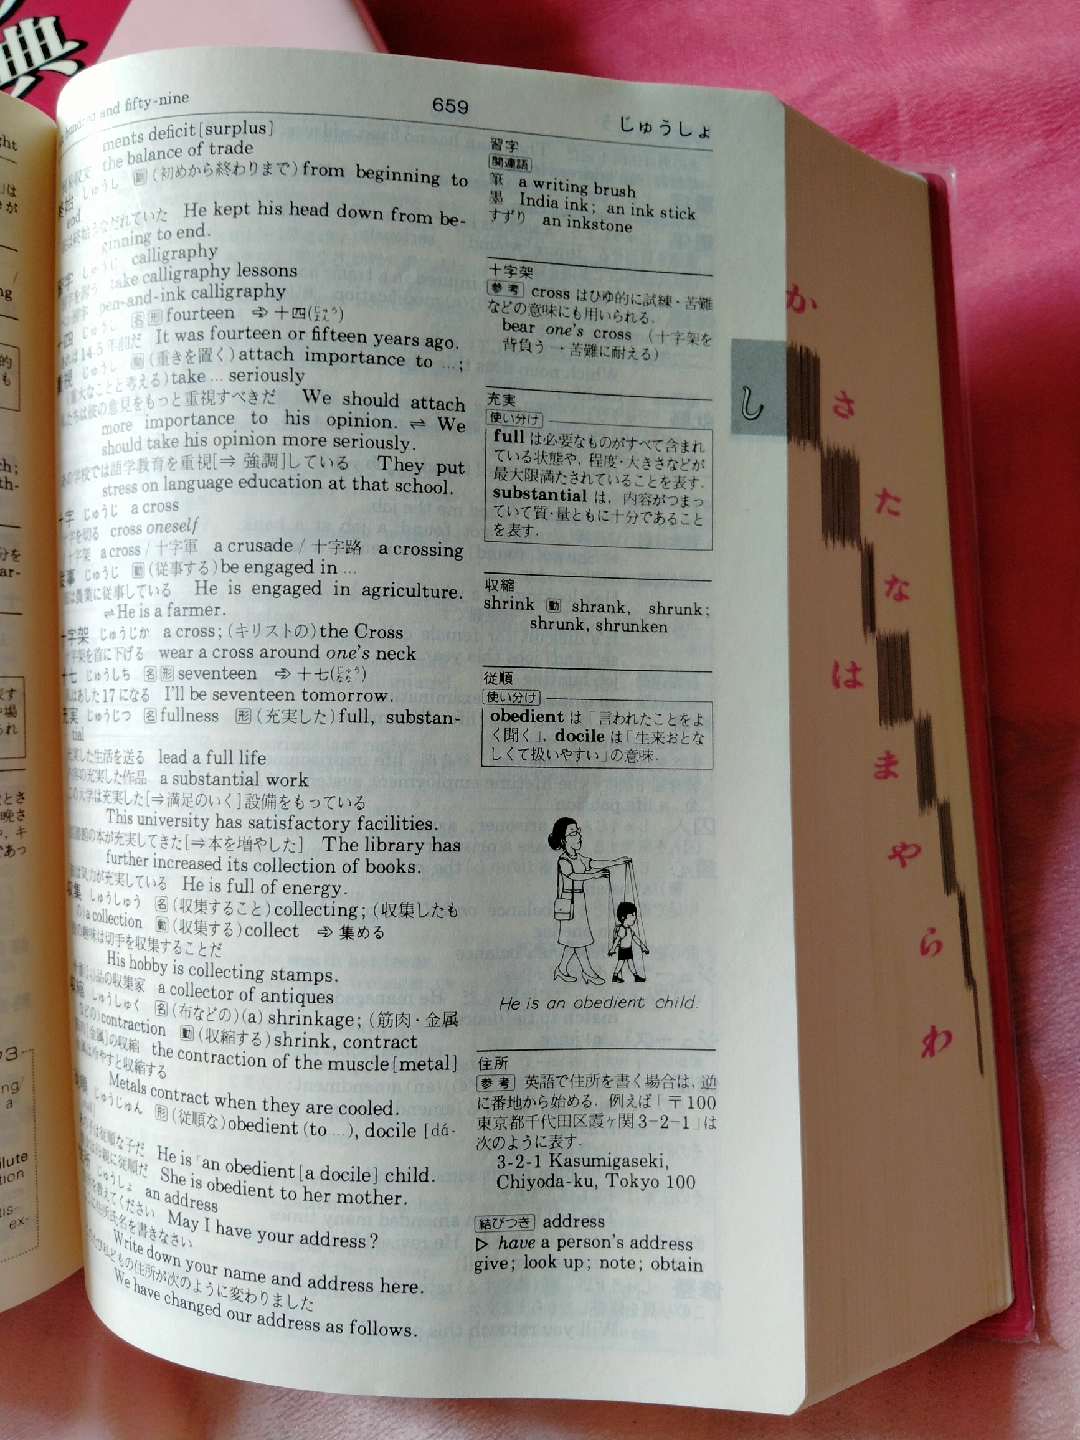 典
hundred and fifty-nine
659
じゅうしょ
ments deficit[surplus]
the balance of trade
じゅうし 副 (初めから終わりまで)from beginning to
end
うなだれていた He kept his head down from be-
ginning to end.
calligraphy
take calligraphy lessons
pen-and-ink calligraphy
じゅうし 名形 fourteen ⇨十四
14-5年前だ It was fourteen or fifteen years ago.
じゅうし 動 (重きを置く)attach importance to …;
(重大なことと考える)take … seriously
の意見をもっと重視すべきだ We should attach
more importance to his opinion. ⇌ We
should take his opinion more seriously.
学校では語学教育を重視[⇒ 強調]している They put
stress on language education at that school.
十字 じゅうじ a cross
十字を切る cross oneself
十字架 a cross / 十字軍 a crusade / 十字路 a crossing
従事 じゅうじ 動 (従事する)be engaged in …
は農業に従事している He is engaged in agriculture.
⇌He is a farmer.
十字架 じゅうじか a cross; (キリストの)the Cross
十字架を首に下げる wear a cross around one's neck
十七 じゅうしち 名形 seventeen ⇨十七
はあした17になる I'll be seventeen tomorrow.
充実 じゅうじつ 名 fullness 形 (充実した)full, substan-
tial
充実した生活を送る lead a full life
の充実した作品 a substantial work
この大学は充実した[⇒満足のいく]設備をもっている
This university has satisfactory facilities.
の本が充実してきた[⇒本を増やした] The library has
further increased its collection of books.
が充実している He is full of energy.
収集 しゅうしゅう 名 (収集すること)collecting; (収集したも
の)a collection 動 (収集する)collect ⇨ 集める
趣味は切手を収集することだ
His hobby is collecting stamps.
品の収集家 a collector of antiques
収縮 しゅうしゅく 名 (布などの)(a) shrinkage; (筋肉・金属
などの)contraction 動 (収縮する)shrink, contract
[金属]の収縮 the contraction of the muscle[metal]
すと収縮する
Metals contract when they are cooled.
じゅうじゅん 形 (従順な)obedient (to …), docile [dá-
は従順な子だ He is an obedient [a docile] child.
に従順だ She is obedient to her mother.
じゅうしょ an address
を教えてください May I have your address?
氏名を書きなさい
Write down your name and address here.
の住所が次のように変わりました
We have changed our address as follows.
習字
関連語
筆 a writing brush
墨 India ink; an ink stick
すずり an inkstone
十字架
参考 cross はひゆ的に試練・苦難
などの意味にも用いられる.
bear one's cross (十字架を
背負う→苦難に耐える)
充実
使い分け
full は必要なものがすべて含まれ
ている状態や, 程度・大きさなどが
最大限満たされていることを表す.
substantial は, 内容がつまっ
ていて質・量ともに十分であること
を表す.
収縮
shrink 動 shrank, shrunk;
shrunk, shrunken
従順
使い分け
obedient は「言われたことをよ
く聞く」, docile は「生来おとな
しくて扱いやすい」の意味.
He is an obedient child.
住所
参考 英語で住所を書く場合は, 逆
に番地から始める. 例えば「〒100
東京都千代田区霞ヶ関3-2-1」は
次のように表す.
3-2-1 Kasumigaseki,
Chiyoda-ku, Tokyo 100
結びつき address
▷ have a person's address
give; look up; note; obtain
し
か
さ
た
な
は
ま
や
ら
わ